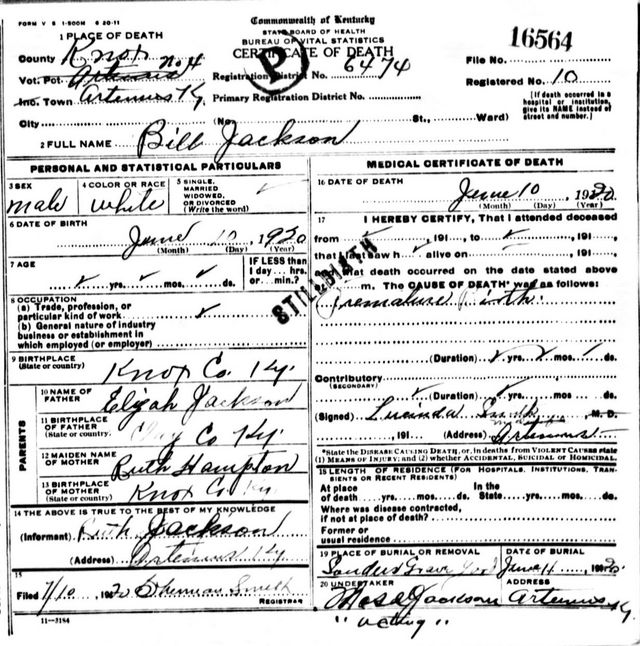 FORM V S 1-500M 6-20-11
Commonwealth of Kentucky
STATE BOARD OF HEALTH
BUREAU OF VITAL STATISTICS
CERTIFICATE OF DEATH
P
16564
1 PLACE OF DEATH
County Knox
Vot. Pct. Artemus No 4
Inc. Town Artemus Ky
City
Registration District No. 6474
Primary Registration District No.
(No. St., Ward)
File No.
Registered No. 10
[If death occurred in a hospital or institution, give its NAME instead of street and number.]
2 FULL NAME Bill Jackson
PERSONAL AND STATISTICAL PARTICULARS
3 SEX
male
4 COLOR OR RACE
white
5 SINGLE, MARRIED WIDOWED, OR DIVORCED (Write the word)
6 DATE OF BIRTH
June 10, 1920
(Month) (Day) (Year)
7 AGE
yrs. mos. ds.
IF LESS than 1 day... hrs. or min.?
8 OCCUPATION
(a) Trade, profession, or particular kind of work
(b) General nature of industry business or establishment in which employed (or employer)
9 BIRTHPLACE
(State or country)
Knox Co. Ky.
PARENTS
10 NAME OF FATHER
Elijah Jackson
11 BIRTHPLACE OF FATHER
(State or country.
Clay Co Ky.
12 MAIDEN NAME OF MOTHER
Ruth Hampton
13 BIRTHPLACE OF MOTHER
(State or country
Knox Co. Ky
14 THE ABOVE IS TRUE TO THE BEST OF MY KNOWLEDGE
(Informant) Ruth Jackson
(Address) Artemus Ky
15
Filed 7/10 1920 Sherman Smith
REGISTRAR
11-3184
STILLBIRTH
MEDICAL CERTIFICATE OF DEATH
16 DATE OF DEATH
June 10, 1920
(Month) (Day) (Year)
17 I HEREBY CERTIFY, That I attended deceased
from 191 , to 191 ,
that I last saw h alive on 191 ,
and that death occurred on the date stated above
at m. The CAUSE OF DEATH* was as follows:
Premature Birth.
(Duration) yrs. mos. 1 ds.
Contributory
(SECONDARY)
(Duration) yrs. mos. ds.
(Signed) Lucinda M. D.
, 191 (Address) Artemus
*State the DISEASE CAUSING DEATH, or, in deaths from VIOLENT CAUSES state (1) MEANS OF INJURY; and (2) whether ACCIDENTAL, SUICIDAL or HOMICIDAL.
18 LENGTH OF RESIDENCE (FOR HOSPITALS, INSTITUTIONS, TRANSIENTS OR RECENT RESIDENTS)
At place of death yrs. mos. ds. In the State yrs. mos. ds.
Where was disease contracted, if not at place of death?
Former or usual residence
19 PLACE OF BURIAL OR REMOVAL
Sanders Grave Yard
DATE OF BURIAL
June 11, 1920
20 UNDERTAKER
Jackson
"acting"
ADDRESS
Artemus Ky.